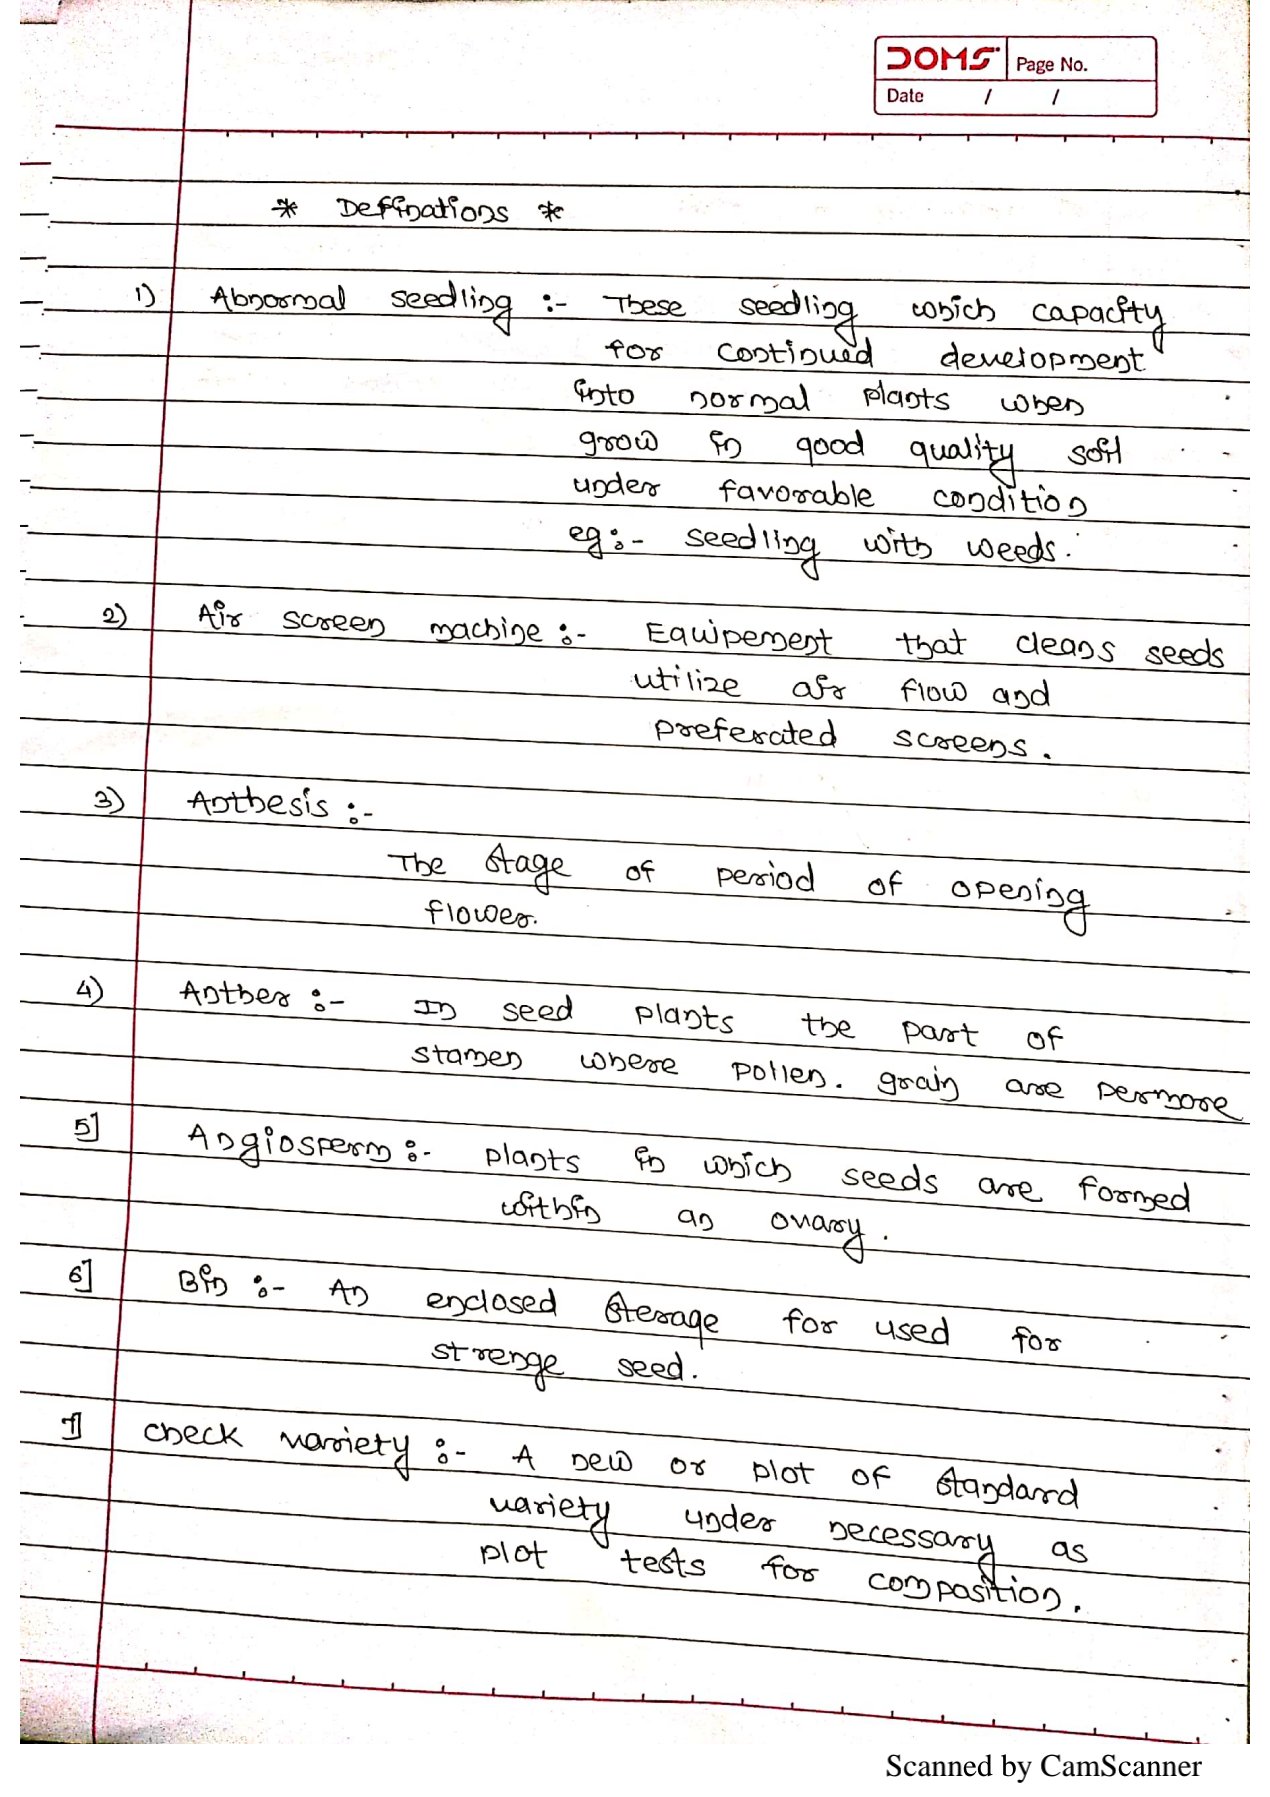 DOMS Page No.
Date / /
* Definations *
1) Abnormal seedling :- These seedling which capacity
for continued development
into normal plants when
grow in good quality soil
under favorable condition
eg:- seedling with weeds.
2) Air screen machine :- Equipement that cleans seeds
utilize air flow and
preferated screens.
3) Anthesis :-
The stage of period of opening
flower.
4) Anther :- In seed plants the part of
stamen where pollen. grain are permore
5] Angiosperm :- plants in which seeds are formed
within an ovary.
6] Bin :- An enclosed sterage for used for
strenge seed.
7] check variety :- A new or plot of standard
variety under necessary as
plot tests for composition.
Scanned by CamScanner